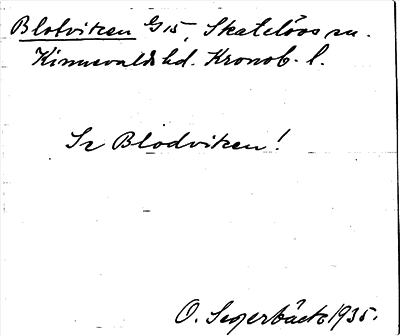 Blotviken G 15, Skatelövs sn.
Kinnevalds hd. Kronob. l.
Se Blodviken!
O. Segerbäck 1935.